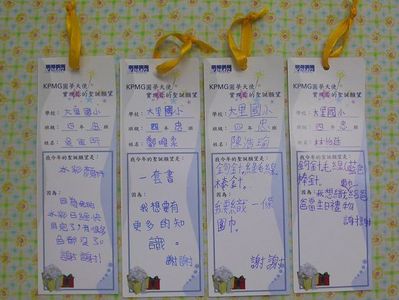 KPMG圓夢天使
實現您的聖誕願望
學校:大里國小
班級:四年
姓名:
我今年的聖誕願望是:
水彩顏料
因為:
水彩
KPMG圓夢天使
實現您的聖誕願望
學校:大里國小
班級:四年
姓名:
我今年的聖誕願望是:
一套書
因為:
我想要有
更多的知
識。
謝謝
KPMG圓夢天使
實現您的聖誕願望
學校:大里國小
班級:四年忠
姓名:陳浩瑜
我今年的聖誕願望是:
鉤針,毛線,
棒針。
因為:
我想織一條
圍巾。
謝謝
KPMG圓夢天使
實現您的聖誕願望
學校:大里國小
班級:四年忠
姓名:林
我今年的聖誕願望是:
鉤針,毛線(藍色
棒針。
因為:
我想織給爸
爸當生日禮物
謝謝